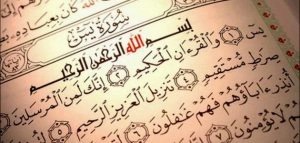 ٱللَّهَ كَانَ بِعِبَادِهِ
سُورَةُ يسٓ
بِسْمِ ٱللَّهِ ٱلرَّحْمَٰنِ ٱلرَّحِيمِ
يسٓ ١ وَٱلْقُرْءَانِ ٱلْحَكِيمِ ٢ إِنَّكَ لَمِنَ ٱلْمُرْسَلِينَ
صِرَٰطٍ مُّسْتَقِيمٍ ٤ تَنزِيلَ ٱلْعَزِيزِ ٱلرَّحِيمِ ٥
أُنذِرَ ءَابَآؤُهُمْ فَهُمْ غَٰفِلُونَ
لَا يُؤْمِنُونَ